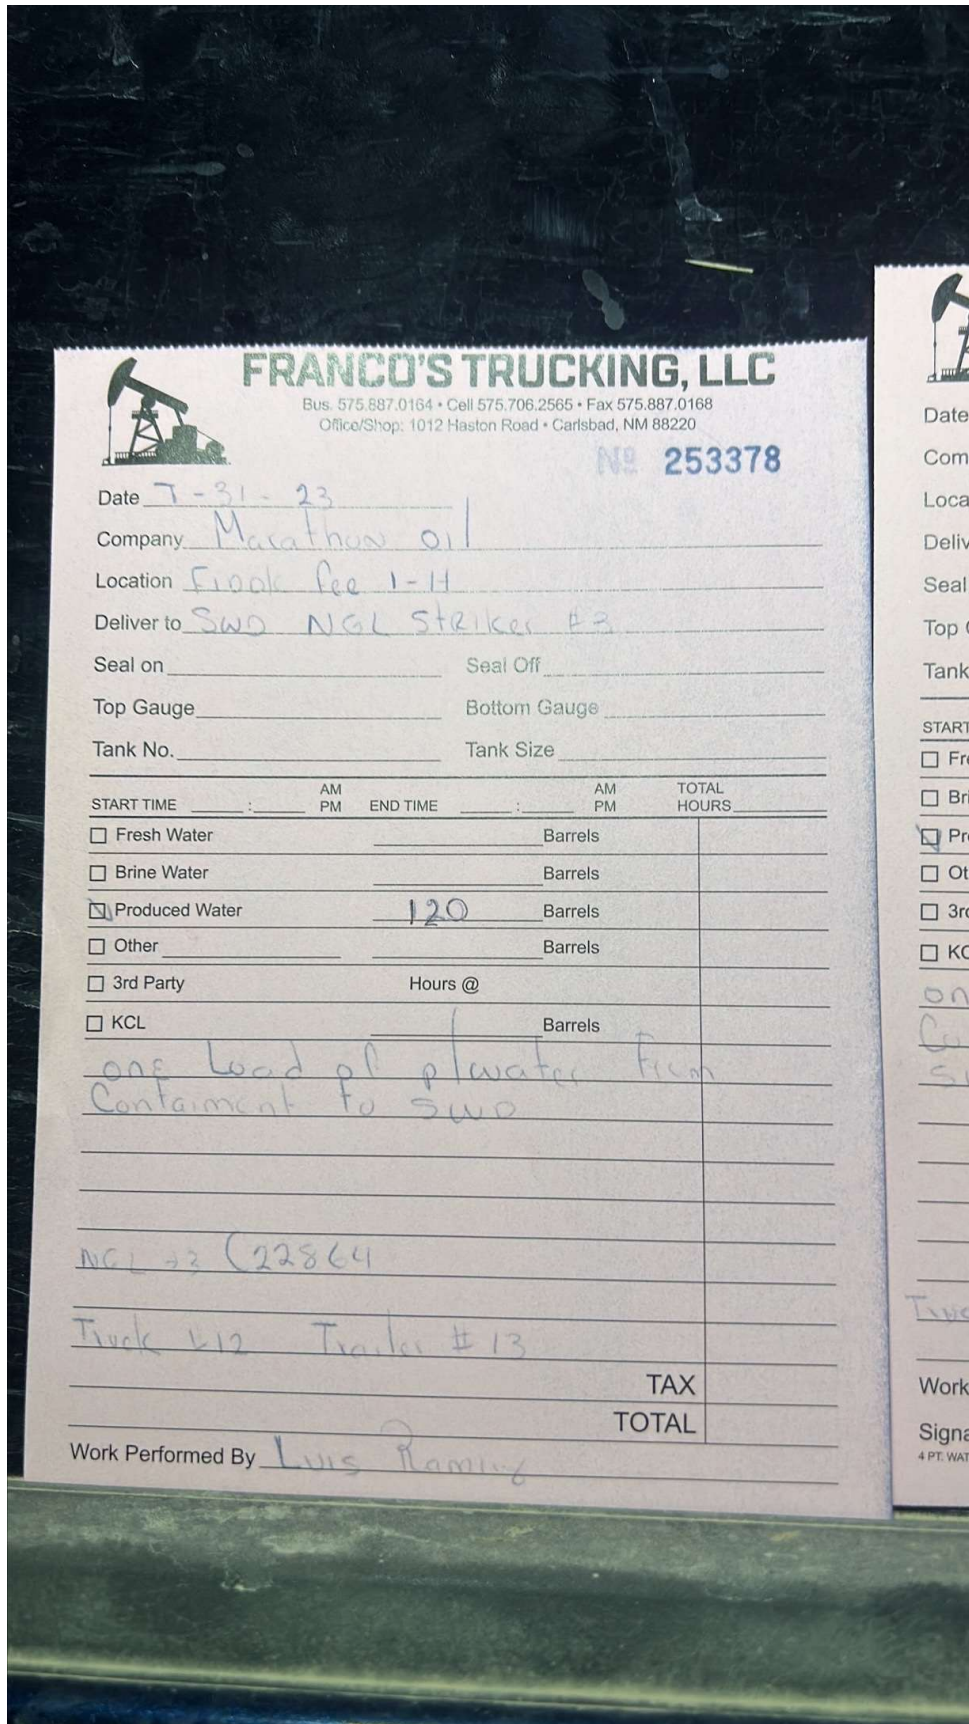 FRANCO'S TRUCKING, LLC
Bus. 575.887.0164 • Cell 575.706.2565 • Fax 575.887.0168
Office/Shop: 1012 Haston Road • Carlsbad, NM 88220
Nº 253378
Date 7-31-23
Company Marathon oil
Location fee 1-H
Deliver to SWD NGL Striker #3
Seal on Seal Off
Top Gauge Bottom Gauge
Tank No. Tank Size
START TIME : AM PM END TIME : AM PM TOTAL HOURS
Fresh Water Barrels
Brine Water Barrels
Produced Water 120 Barrels
Other Barrels
3rd Party Hours @
KCL Barrels
one Load of p/water From
Contaiment to SWD
NGL #3 (22864
Truck #12 Trailer #13
TAX
TOTAL
Work Performed By Luis
Date
Com
Loca
Deliv
Seal
Top
Tank
START
Fre
Bri
Pro
Ot
3rd
KC
on
Co
Work
Signa
4 PT. WAT